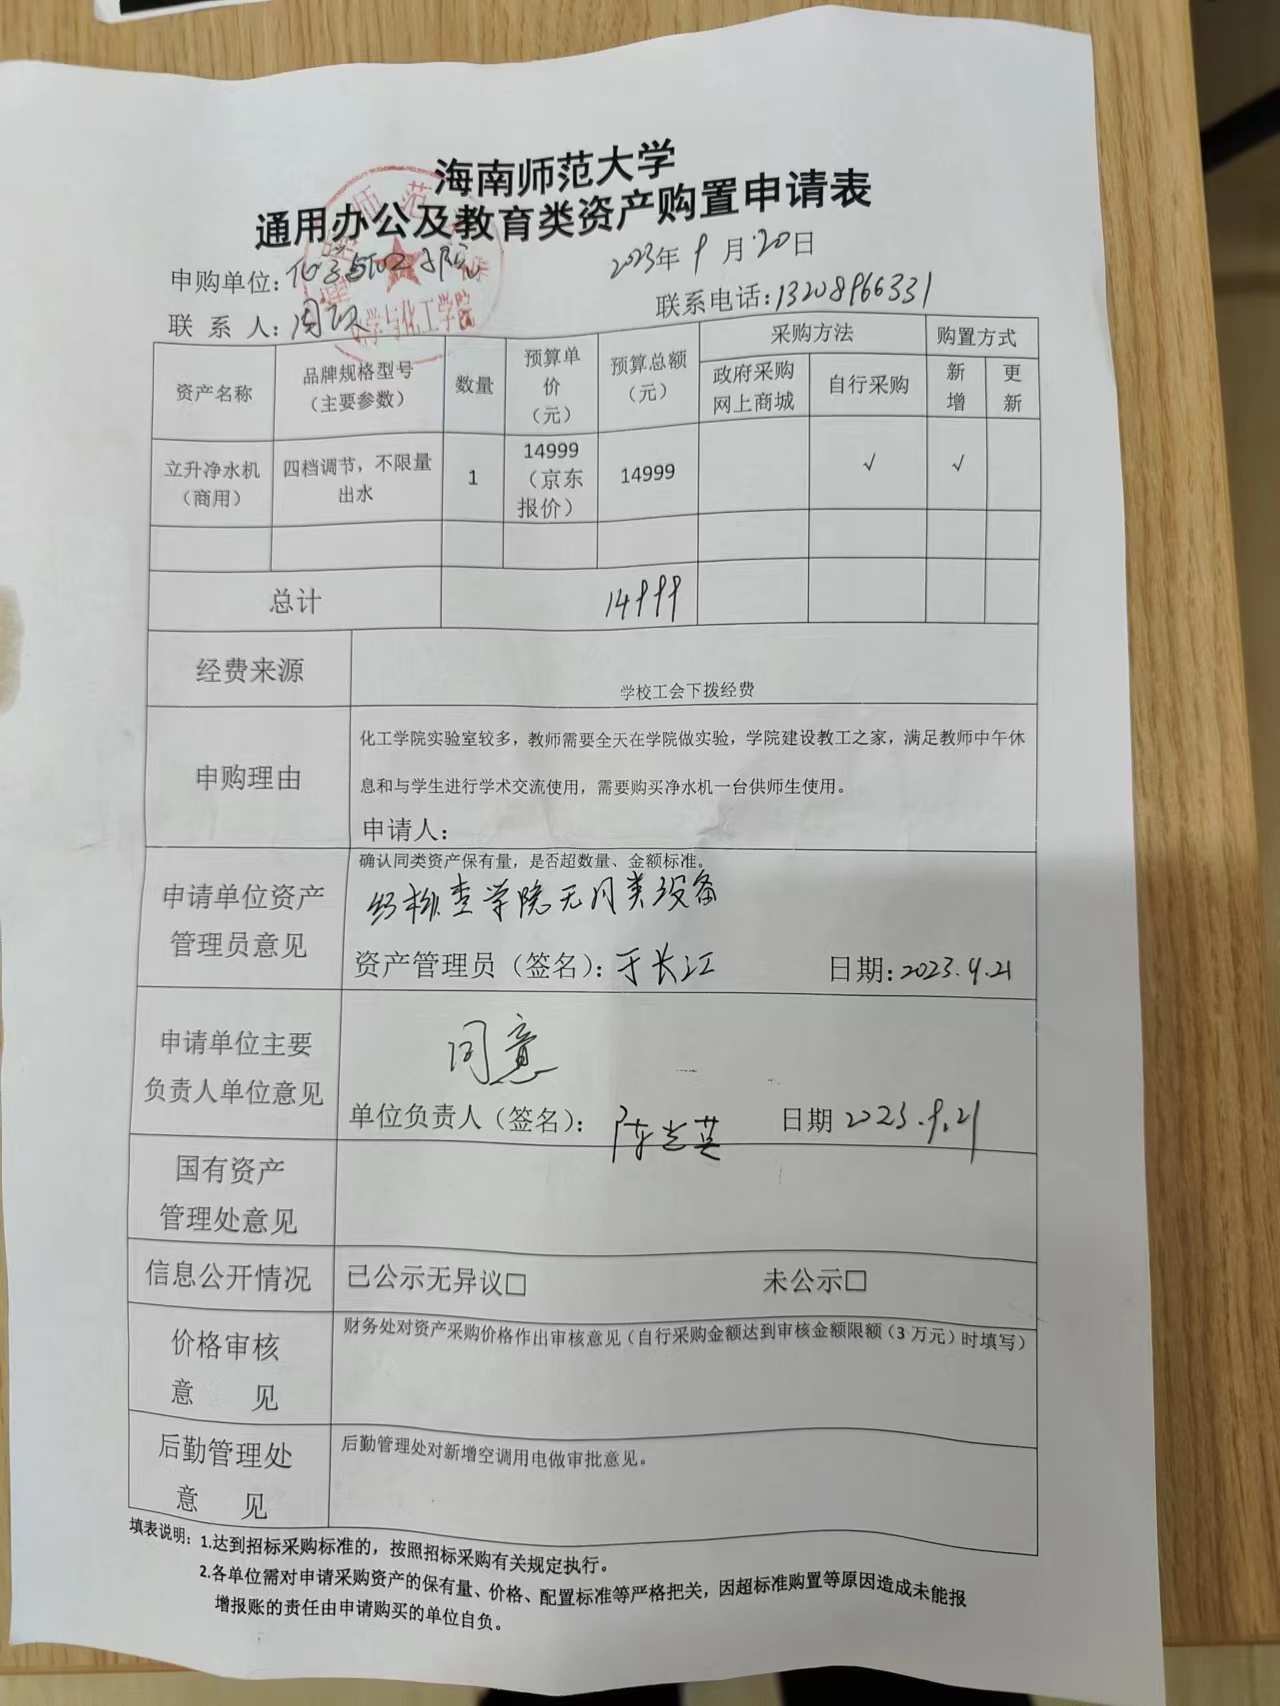 海南师范大学
通用办公及教育类资产购置申请表
2023年9月20日
申购单位：化学与化工学院
联系电话：13208966331
联系人：周
化学与化工学院
资产名称 品牌规格型号（主要参数） 数量 预算单价（元） 预算总额（元） 采购方法 购置方式
政府采购网上商城 自行采购 新增 更新
立升净水机（商用） 四档调节，不限量出水 1 14999（京东报价） 14999 √ √
总计 14999
经费来源 学校工会下拨经费
申购理由
化工学院实验室较多，教师需要全天在学院做实验，学院建设教工之家，满足教师中午休
息和与学生进行学术交流使用，需要购买净水机一台供师生使用。
申请人：
申请单位资产
管理员意见
确认同类资产保有量，是否超数量、金额标准。
经核查学院无同类设备
资产管理员（签名）：于长江 日期：2023.9.21
申请单位主要
负责人单位意见
同意
单位负责人（签名）：陈光英 日期 2023.9.21
国有资产
管理处意见
信息公开情况 已公示无异议□ 未公示□
价格审核
意 见
财务处对资产采购价格作出审核意见（自行采购金额达到审核金额限额（3万元）时填写）
后勤管理处
意 见
后勤管理处对新增空调用电做审批意见。
填表说明：1.达到招标采购标准的，按照招标采购有关规定执行。
2.各单位需对申请采购资产的保有量、价格、配置标准等严格把关，因超标准购置等原因造成未能报
增报账的责任由申请购买的单位自负。